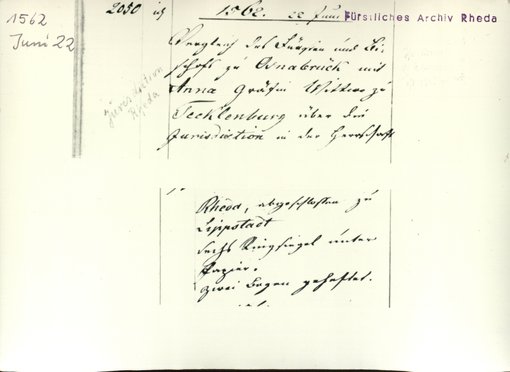 1562
Juni 22
2050
1562. 22 Juni
Fürstliches Archiv Rheda
Jurisdiction
Rheda
Vergleich des Fürsten und Bi-
schofs zu Osnabrück mit
Anna Gräfin Wittwe zu
Tecklenburg über die
Jurisdiction in der Herrschaft
Rheda, abgeschlossen zu
Lippstadt
sechs Ringsiegel unter
Papier.
zwei Bogen geheftet.